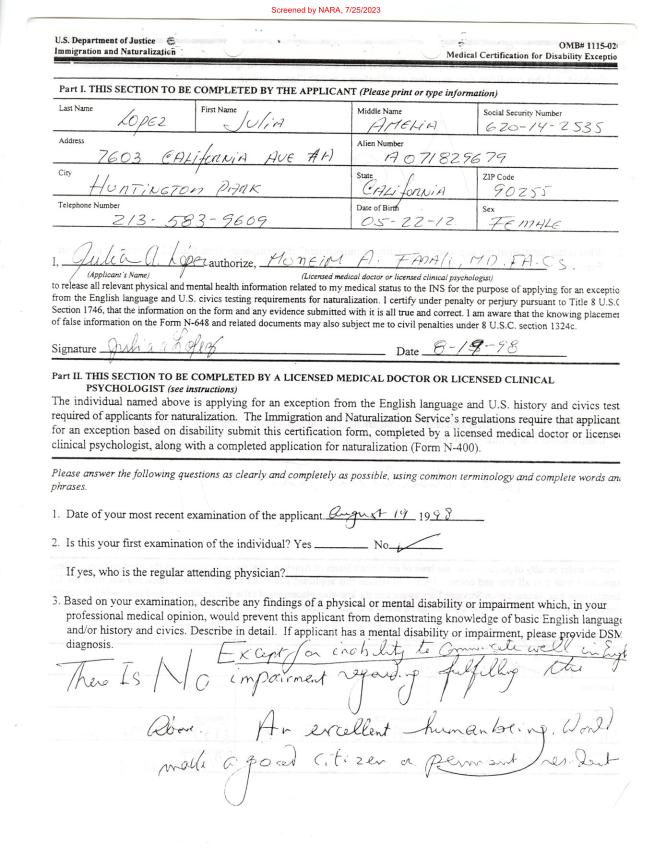 Screened by NARA, 7/25/2023
U.S. Department of Justice
Immigration and Naturalization
OMB# 1115-020
Medical Certification for Disability Exceptio
Part I. THIS SECTION TO BE COMPLETED BY THE APPLICANT (Please print or type information)
Last Name First Name Middle Name Social Security Number
LOPEZ JULIA AMELIA 620-14-2535
Address Alien Number
7603 CALIFORNIA AVE #A A071829679
City State ZIP Code
HUNTINGTON PARK CALIFORNIA 90255
Telephone Number Date of Birth Sex
213-583-9609 05-22-12 FEMALE
I, Julia A. López authorize, MONEIM A. FADALI, MD. FA.CS.
(Applicant's Name) (Licensed medical doctor or licensed clinical psychologist)
to release all relevant physical and mental health information related to my medical status to the INS for the purpose of applying for an exceptio
from the English language and U.S. civics testing requirements for naturalization. I certify under penalty or perjury pursuant to Title 8 U.S.C
Section 1746, that the information on the form and any evidence submitted with it is all true and correct. I am aware that the knowing placemen
of false information on the Form N-648 and related documents may also subject me to civil penalties under 8 U.S.C. section 1324c.
Signature Julia A Lopez Date 8-19-98
Part II. THIS SECTION TO BE COMPLETED BY A LICENSED MEDICAL DOCTOR OR LICENSED CLINICAL
PSYCHOLOGIST (see instructions)
The individual named above is applying for an exception from the English language and U.S. history and civics test
required of applicants for naturalization. The Immigration and Naturalization Service's regulations require that applicant
for an exception based on disability submit this certification form, completed by a licensed medical doctor or license
clinical psychologist, along with a completed application for naturalization (Form N-400).
Please answer the following questions as clearly and completely as possible, using common terminology and complete words an
phrases.
1. Date of your most recent examination of the applicant August 19 1998
2. Is this your first examination of the individual? Yes No ✓
If yes, who is the regular attending physician?
3. Based on your examination, describe any findings of a physical or mental disability or impairment which, in your
professional medical opinion, would prevent this applicant from demonstrating knowledge of basic English language
and/or history and civics. Describe in detail. If applicant has a mental disability or impairment, please provide DSM
diagnosis.
Except for inability to communicate well in Engl
There Is No impairment regarding fulfilling the
Above. An excellent human being. Would
make a good citizen or permanent resident